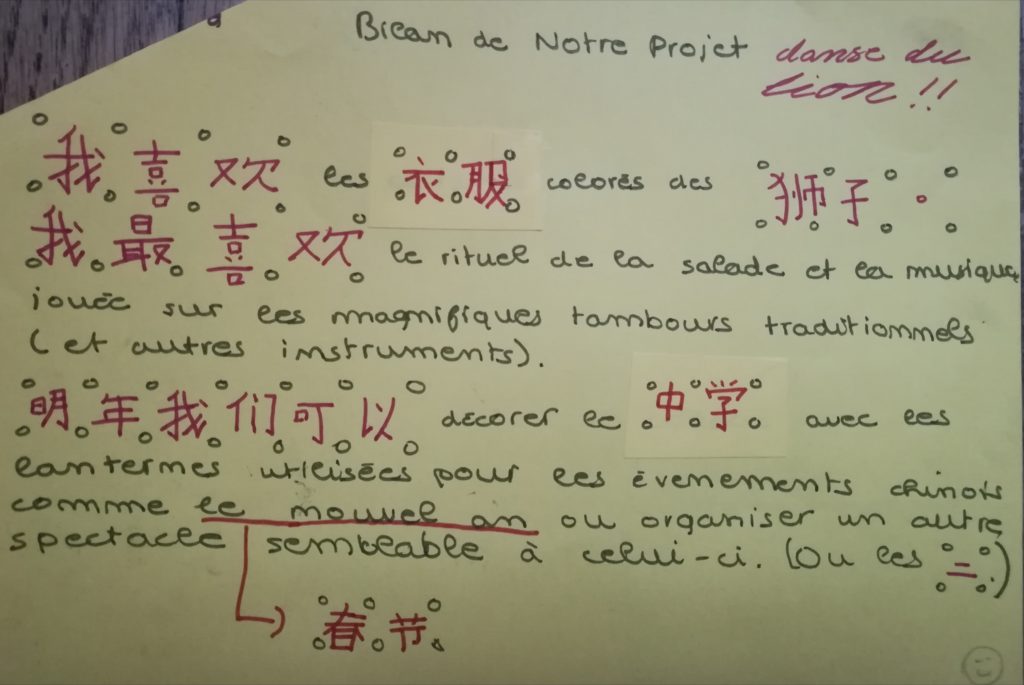 Bilan de Notre Projet danse du
lion !!
我喜欢 les 衣服 colorés des 狮子.
我最喜欢 le rituel de la salade et la musique
jouée sur les magnifiques tambours traditionnels
(et autres instruments).
明年我们可以 décorer le 中学 avec les
lanternes utilisées pour les évenements chinois
comme le nouvel an ou organiser un autre
spectacle semblable à celui-ci. (Ou les 二.)
春节